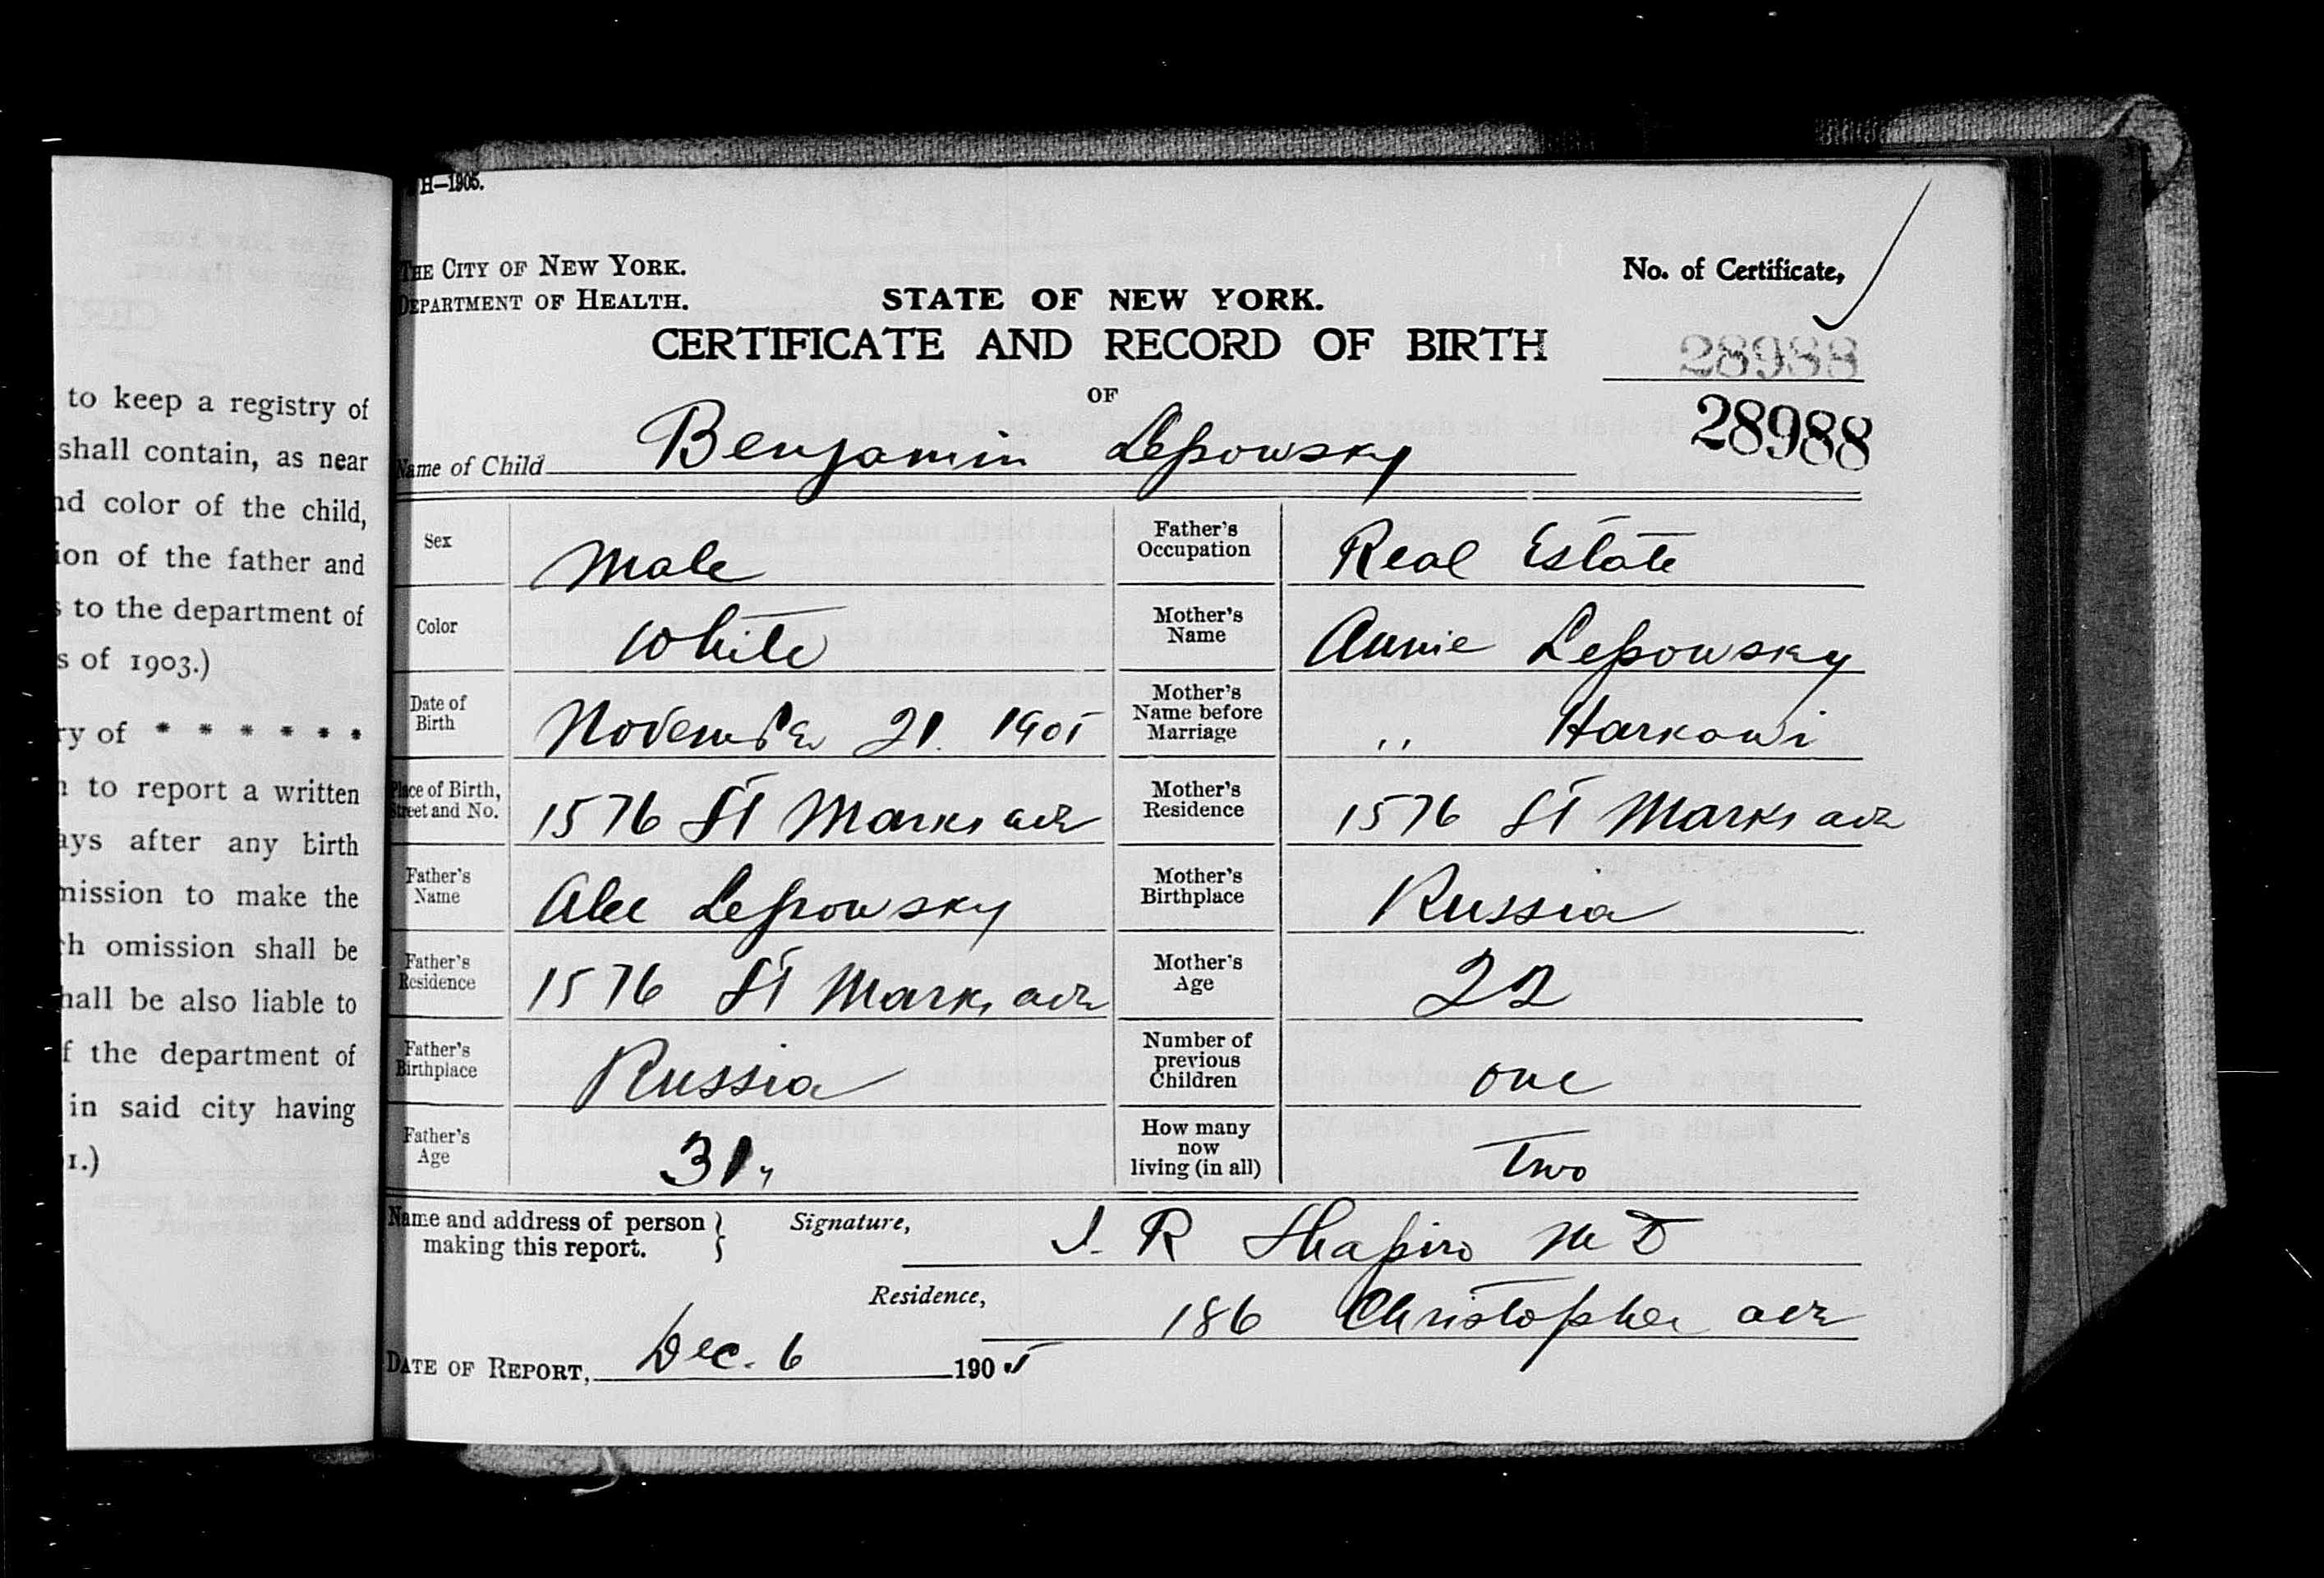 to keep a registry of
shall contain, as near
nd color of the child,
ion of the father and
s to the department of
s of 1903.)
ry of * * * * * *
n to report a written
ays after any birth
mission to make the
ch omission shall be
hall be also liable to
f the department of
in said city having
1.)
H—1905.
THE CITY OF NEW YORK.
DEPARTMENT OF HEALTH.
STATE OF NEW YORK.
No. of Certificate,
CERTIFICATE AND RECORD OF BIRTH
28988
OF
28988
Name of Child Benjamin Lepowsky
Sex Male
Father's Occupation Real Estate
Color White
Mother's Name Annie Lepowsky
Date of Birth November 21. 1905
Mother's Name before Marriage " Harkowi
Place of Birth, Street and No. 1576 St Marks ave
Mother's Residence 1576 St Marks ave
Father's Name Alec Lepowsky
Mother's Birthplace Russia
Father's Residence 1576 St Marks ave
Mother's Age 22
Father's Birthplace Russia
Number of previous Children one
Father's Age 31,,
How many now living (in all) Two
Name and address of person making this report. Signature, J. R Shapiro M D
Residence, 186 Christopher ave
DATE OF REPORT, Dec. 6 1905